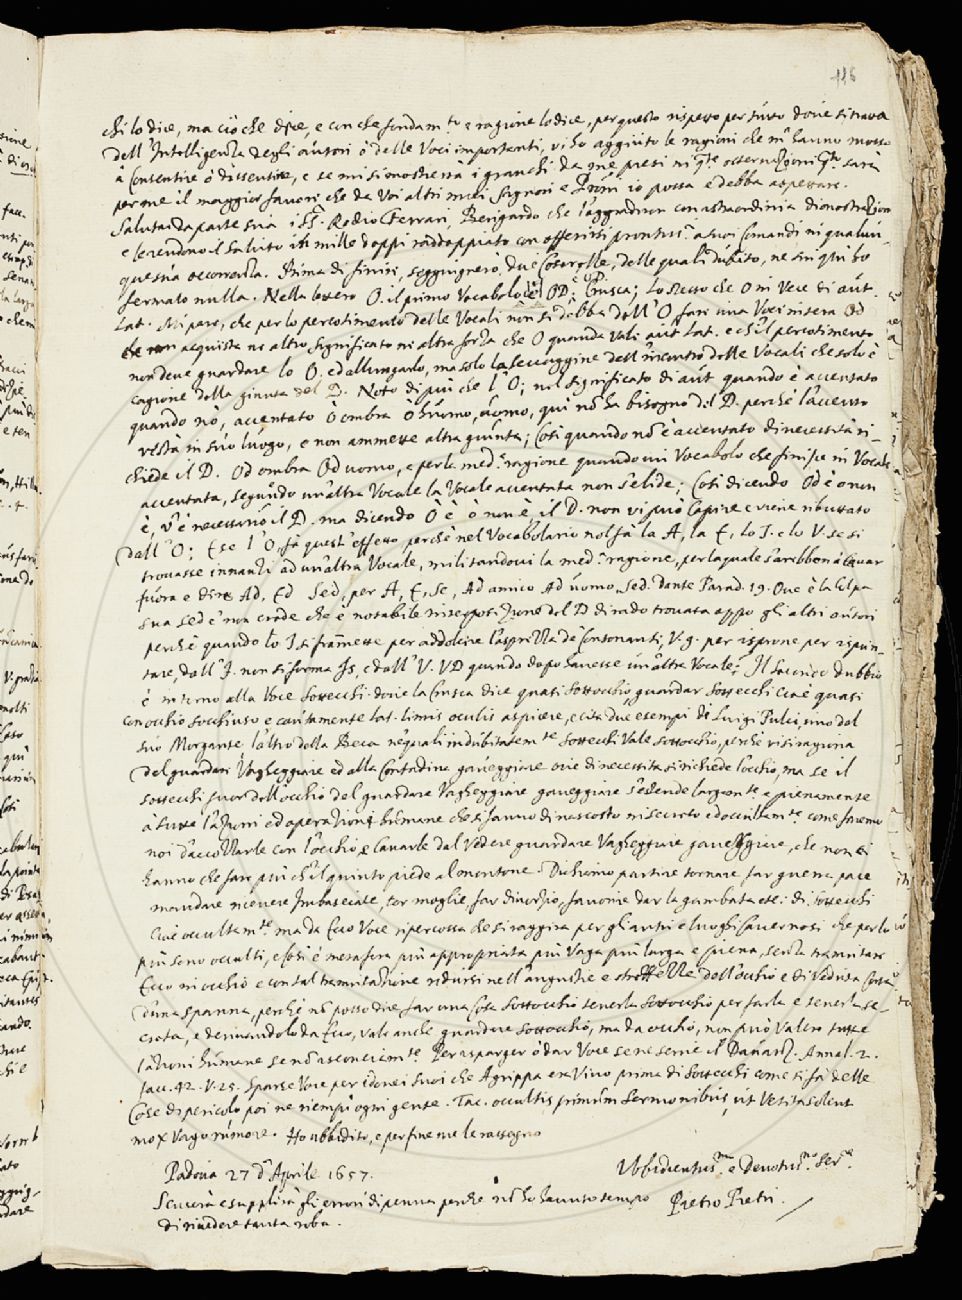 116
chi lo dice, ma ciò che dice, e con che fondam.to e ragione lo dice, per questo rispetto per tutto dove si trata
dell'Intelligenza degli autori ò delle Voci importanti, vi ho aggiunto le ragioni che m'hanno mosso
à Consentire ò dissentire, e se mi si mostrerà i granchi da me presi in q.te osservazioni q.to sarà
per me il maggior favore che da Voi altri miei Signori e Pròni io possa e debba aspettare.
Saluta da parte sua i SS.i Rodio Ferrari, Berigardo che l'aggradiron con astraordinaria dimostrazion
e le rendono il saluto in mille doppi raddoppiato con offerirsi prontiss.i a suoi Comandi in qualun-
que sua occorrenza. Prima di finire, soggiugnerò due Coserelle, delle quali dubito, ne sin qui ho
fermato nulla. Nella lettera O. il primo Vocabolo è OD; Crusca; lo stesso che O in Vece di aut.
Lat. Mi pare, che per lo percotimento delle Vocali non si debba dell'O fare una Voce intera Od
che non acquista ne altro significato ne altra forza che O quando vale aut Lat. e ch'il percotimento
non deve guardare lo O. ed allungarlo, ma solo la seccaggine dell'incontro delle Vocali che solo è
cagione della giunta del D. Noto di più che l'O; nel significato di aut quando è accentato
quando nò, accentato ò ombra ò huomo, uomo, qui nò ha bisogno del D. perche l'accento
resta in suo luogo, e non ammette altra giunta; Così quando nò è accentato di necessità ri-
chiede il D. Od ombra Od uomo, e per la med.a ragione quando un Vocabolo che finisce in Vocale
accentata, seguendo un'altra Vocale la Vocale accentata non s'elide; Così dicendo Od è ò non
è, v'è necessario il D. ma dicendo O è ò non è il D. non vi può Capire e viene ributtato
dall'O; E se l'O fà quest'effetto, perche nel Vocabolario nol fà la A, la E, lo I. e lo V. se si
trovasse innanzi ad un'altra Vocale, militandovi la med.a ragione, per la quale s'arebbon à Cavar
fuora e dire Ad, Ed Sed, per A, E, Se, Ad amico Ad uomo, Sed. Dante Parad. 19. Ove è la Colpa
sua sed è non crede che è notabile interposizione del D di rado trovata appo gli altri autori
perche quando lo I si framette per addolcire l'asprezza de Consonanti; V.g. per isprone per ispun-
tare, dall'I. non si forma Is, e dall'V. VD quando dopo havesse un'altra Vocale; Il Secondo dubbio
è intorno alla Voce Sottecchi. dove la Crusca dice quasi Sottocchio, guardar Sottecchi cioè quasi
con occhio socchiuso e cautamente Lat. limis oculis aspicere, e cita due esempi di Luigi Pulci, uno del
suo Morgante, l'altro della Beca ne quali indubitatam.te Sottecchi Vale sottocchio, perche si ragiona
del guardare Vagheggiare ed alla Contadina gaveggiare ove di necessità si richiede l'occhio, ma se il
sottecchi fuor dell'occhio del guardare Vagheggiare gaveggiare s'estende largam.te e pienamente
à tutte l'azzioni ed operazioni humane che si fanno di nascosto in secreto ed occultam.te come faremo
noi d'accozzarle con l'occhio, e Cavarle dal Vedere guardare Vagheggiare gaveggiare, che non ci
hanno che fare più ch'il quinto piede al montone. Diciamo partire tornare far guerra pace
mandare ricevere Imbasciate, tor moglie, far divorzio, favorire dar la gambata etc: di sottecchi
Cioè occultam.te ma da Ecco Voce ripercossa che si raggira per gli antri e luoghi Cavernosi che per lo
più sono occulti, e Così è metafora più appropriata più Vaga più larga e piena, senza tramutare
Ecco in occhio e con tal tramutazione ridursi nell'angustie e strettezze dell'occhio e di Veduta Corta
d'una spanna, perche nò posso dire far una Cosa sottocchio tenerla sottocchio per farla e tenerla se-
creta, e derivandolo da Ecco, vale anche guardare sottocchio, ma da occhio, non può Valere tutte
l'azzioni humane se nò sconciam.te. Per ispargere ò dar Voce se ne serve il Davanz. Annal. 2.
facc. 42. V. 25. Sparse Voce per idonei suoi che Agrippa era Vivo prima di sottecchi come si fà delle
Cose di pericolo poi ne riempì ogni gente. Tac. occultis primùm sermonibus, ut Vetita solent
mox Vago rumore. Ho ubbidito, e per fine me le rassegno
Padova 27 d'Aprile 1657.
Ubbidientiss.mo e Devotiss.mo Ser.re
Scuserà e supplirà gli errori di penna perche nò ho havuto tempo
Pietro Pietri.
di rivedere tanta roba.